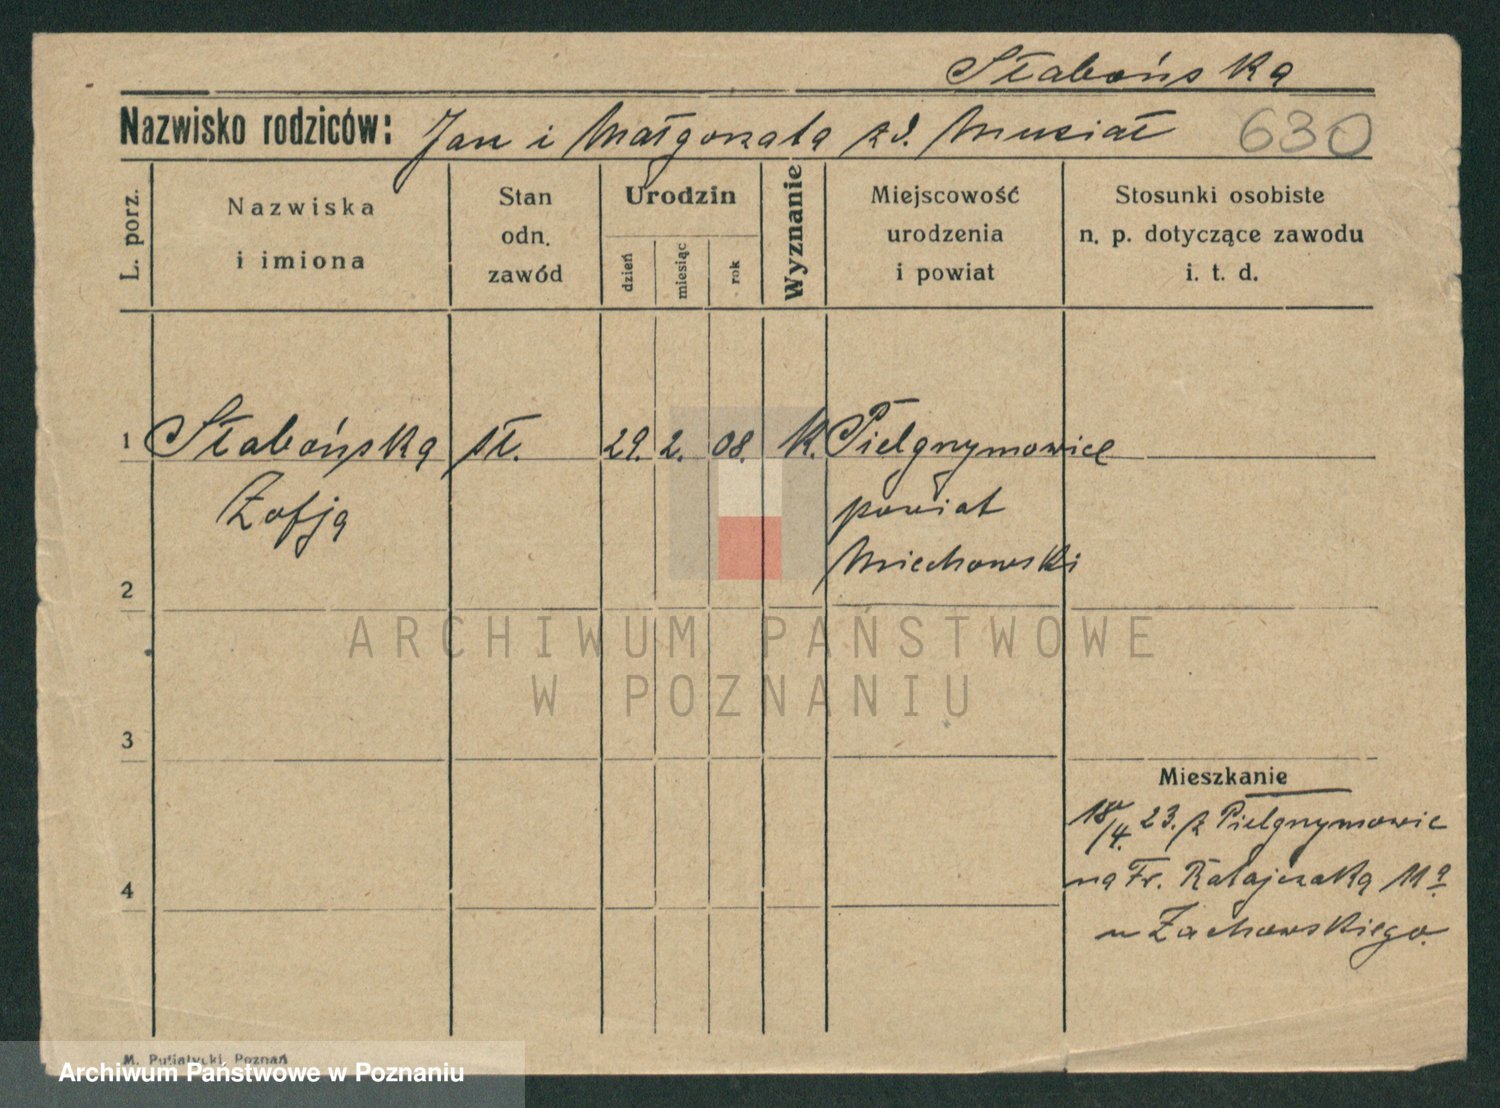 Słabońska
Nazwisko rodziców: Jan i Małgorzata zd. Musiał 630
L. porz.
Nazwiska
i imiona
Stan
odn.
zawód
Urodzin
dzień
miesiąc
rok
Wyznanie
Miejscowość
urodzenia
i powiat
Stosunki osobiste
n. p. dotyczące zawodu
i. t. d.
1 Słabońska sł. 29. 2. 08. K. Pielgrzymowice
Zofja powiat
Miechowski
2
ARCHIWUM PAŃSTWOWE
W POZNANIU
3
Mieszkanie
18/4. 23. z Pielgrzymowic
na Fr. Ratajczaka 11a
u Żuchowskiego.
4
M. Putiatycki, Poznań
Archiwum Państwowe w Poznaniu